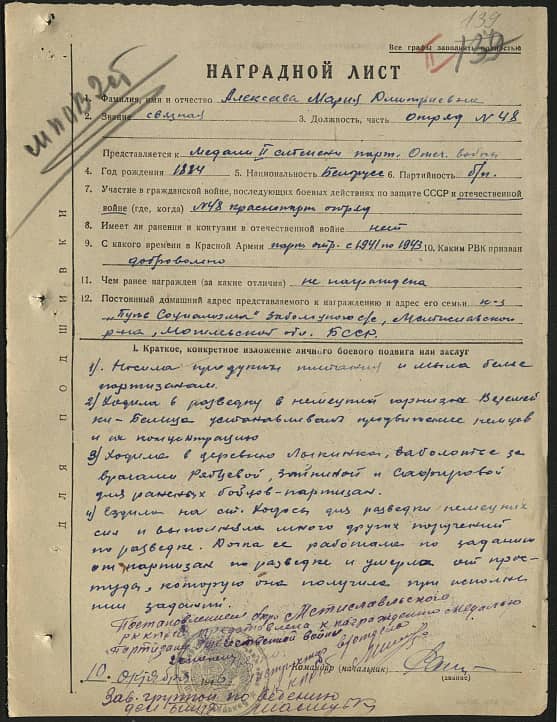 139
Все графы заполнять полностью
II 139
НАГРАДНОЙ ЛИСТ
1. Фамилия, имя и отчество Алексеева Мария Дмитриевна
2. Звание связная 3. Должность, часть отряд N 48
Представляется к медали II степени парт. Отеч. войны
4. Год рождения 1884 5. Национальность Белорусс 6. Партийность б/п.
7. Участие в гражданской войне, последующих боевых действиях по защите СССР и отечественной
войне (где, когда) N48 краснопарт отряд
8. Имеет ли ранения и контузии в отечественной войне нет
9. С какого времени в Красной Армии парт. отр. с 1941 по 1943 10. Каким РВК призван
добровольно
11. Чем ранее награжден (за какие отличия) не награждена
12. Постоянный домашний адрес представляемого к награждению и адрес его семьи к-з
"Путь Социализма" Заболотского с/с, Мстиславской
р-на, Могильской обл. БССР.
I. Краткое, конкретное изложение личного боевого подвига или заслуг
1). Носила продукты питания и мыла белье
партизанам.
2) Ходила в разведку в немецкий гарнизон
Белица устанавливать продвижение немцев
и их концентрацию
3) Ходила в деревню Заболотье за
врагами Рябцевой, и
для раненых бойцов-партизан.
4) Ездила на ст. Ходосы для разведки немецких
сил и выполняла много других поручений
по разведке. Дочка ее работала по заданию
от партизан по разведке и умерла от прос-
туды, которую она получила при исполне-
нии заданий.
Постановлением бюро Мстиславльского
РК КП(б)Б представлена к награждению медалью
Партизану Отечественной войны
II степени
Командир (начальник)
(звание)
10. октября
Зав. группой по ведению
ДЛЯ ПОДШИВКИ